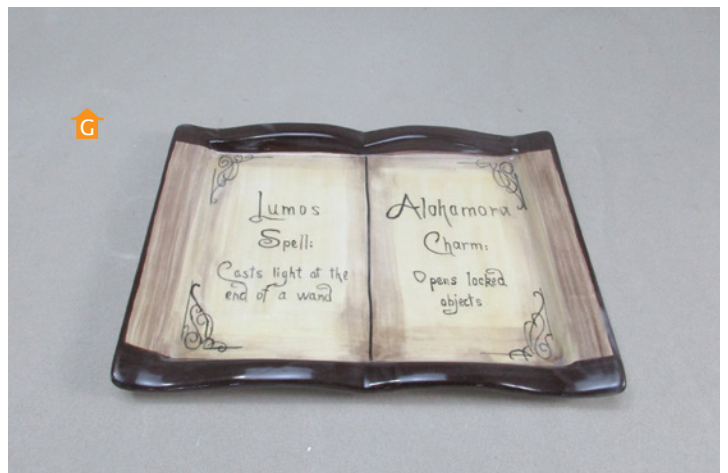 G
Lumos
Spell:
Casts light at the
end of a wand
Alohamora
Charm:
Opens locked
objects